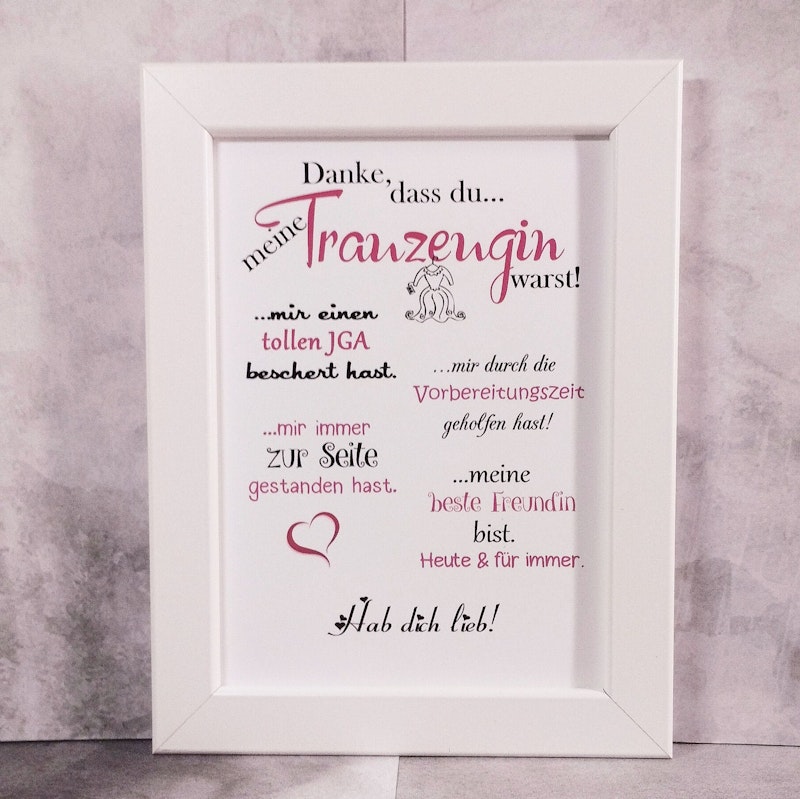 Danke,
dass du...
meine Trauzeugin
warst!
...mir einen
tollen JGA
beschert hast.
...mir durch die
Vorbereitungszeit
geholfen hast!
...mir immer
zur Seite
gestanden hast.
...meine
beste Freundin
bist.
Heute & für immer.
Hab dich lieb!